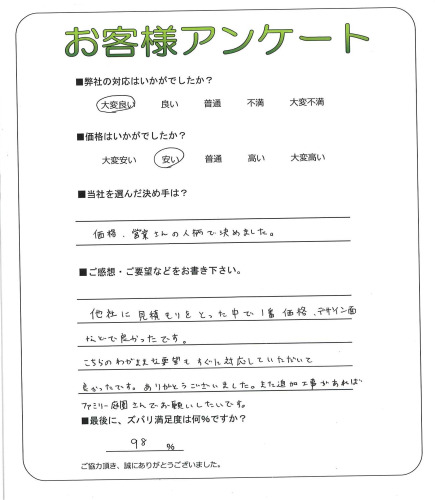 お客様アンケート
■弊社の対応はいかがでしたか？
大変良い　良い　普通　不満　大変不満
■価格はいかがでしたか？
大変安い　安い　普通　高い　大変高い
■当社を選んだ決め手は？
価格、営業さんの人柄で決めました。
■ご感想・ご要望などをお書き下さい。
他社に見積もりをとった中で1番価格、デザイン面
などで良かったです。
こちらのわがままな要望もすぐに対応していただいて
良かったです。ありがとうございました。また追加工事があれば
ファミリー庭園さんでお願いしたいです。
■最後に、ズバリ満足度は何％ですか？
98 ％
ご協力頂き、誠にありがとうございました。